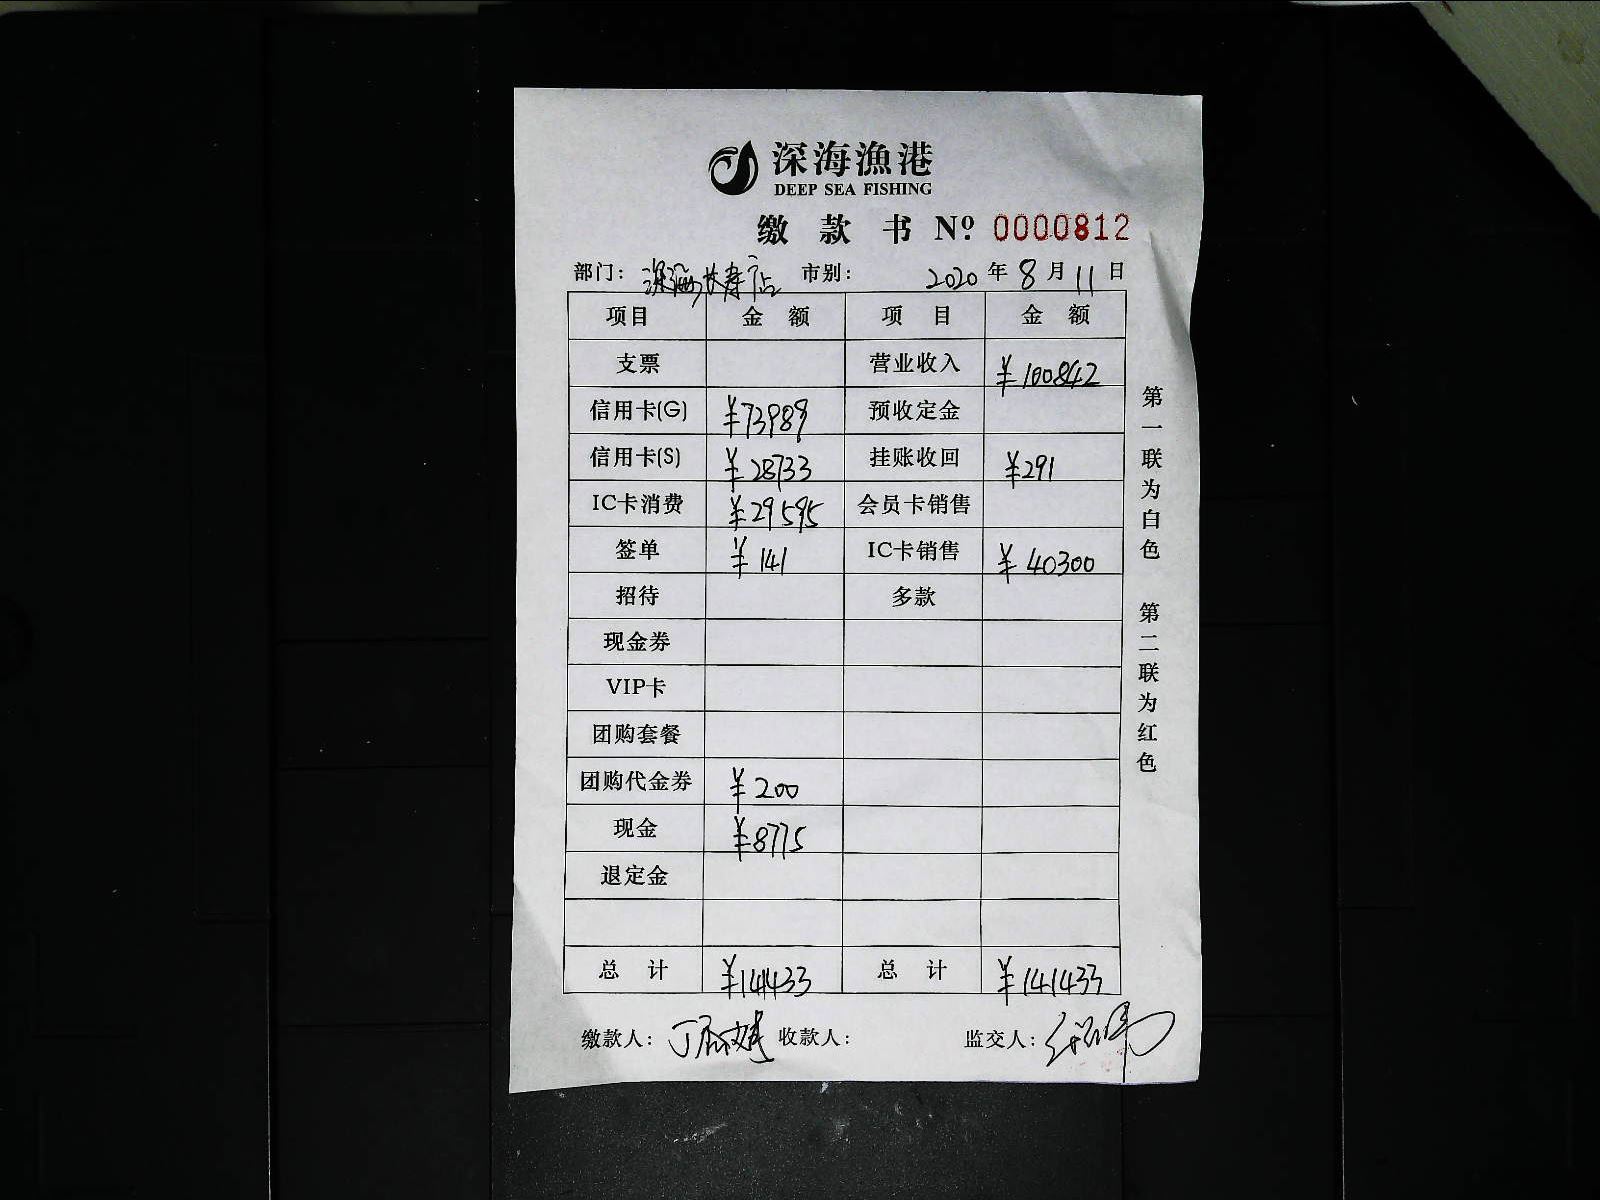 深海漁港
DEEP SEA FISHING
缴款书 Nº 0000812
部门：深海长寿店 市别： 2020年8月11日
项目 金额 项目 金额
支票 营业收入 ¥100842
信用卡(G) ¥73989 预收定金
信用卡(S) ¥28733 挂账收回 ¥291
IC卡消费 ¥29595 会员卡销售
签单 ¥141 IC卡销售 ¥40300
招待 多款
现金券
VIP卡
团购套餐
团购代金券 ¥200
现金 ¥8775
退定金
总计 ¥141433 总计 ¥141433
缴款人： 收款人： 监交人：
第一联为白色 第二联为红色